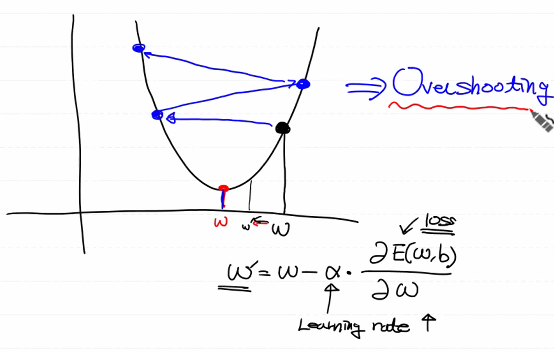 ⇒ Overshooting
w w' ← w
loss
w' = w - α · ∂E(w,b) / ∂w
Learning rate ↑